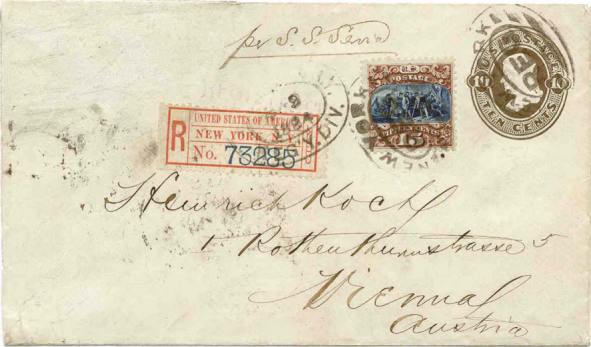 pr S. S. Servia
U.S. POSTAGE
10 10
TEN CENTS
NEW YORK
POSTAGE
FIFTEEN CENTS
15
NEW YORK
DIV.
UNITED STATES OF AMERICA
R
NEW YORK
No. 73285
Heinrich Koch
1. Rothenthurmstrasse 5
Vienna
Austria